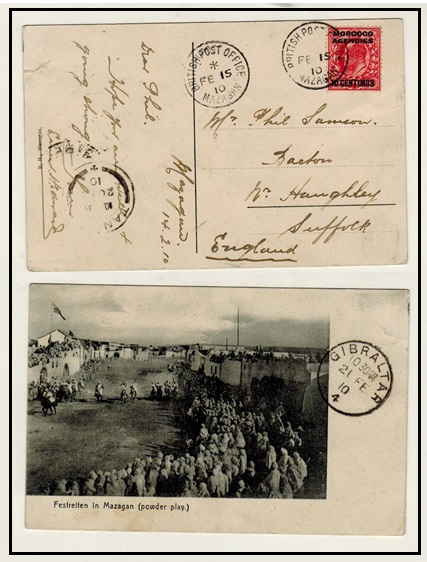 BRITISH POST OFFICE
*
FE 15
10
MAZAGAN
BRITISH POST
FE 15
10
MAZAGAN
MOROCCO
AGENCIES
10 CENTIMOS
Dear Phil.
Hope you are
going strong
Mazagan.
14.2.10
Mr. Phil Samson.
Bacton
Nr. Haughley
Suffolk
England
GIBRALTAR
21 FE
10
4
Festreiten in Mazagan (powder play.)